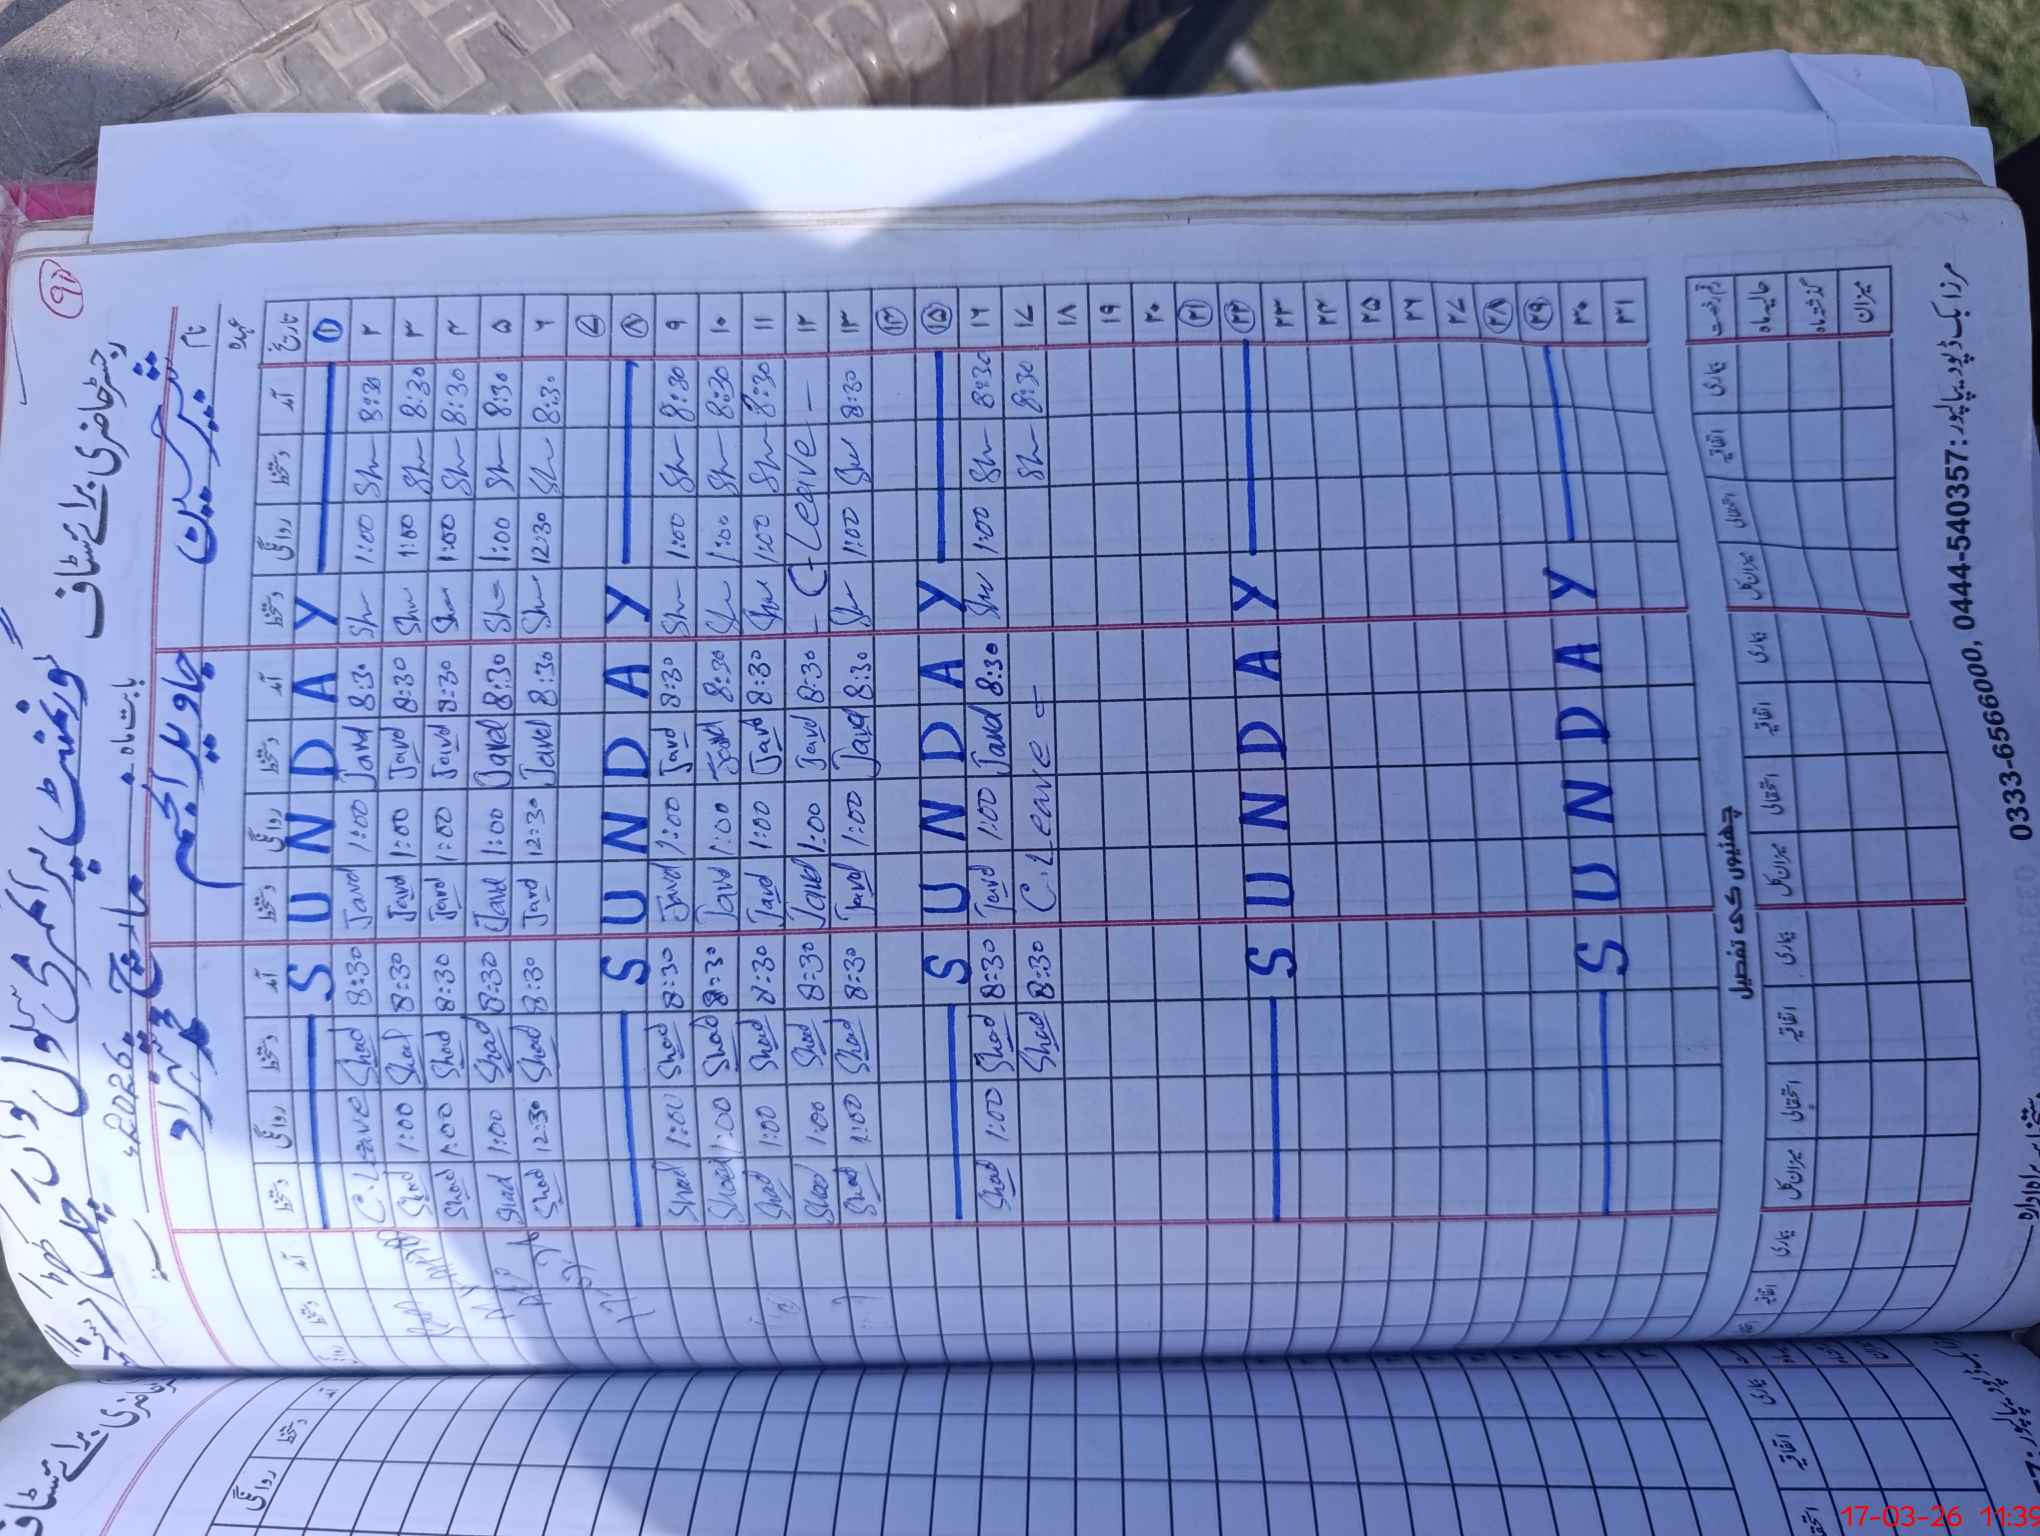 91
رجسٹر حاضری برائے سٹاف
گورنمنٹ پرائمری سکول
بابت ماہ مارچ 2026ء
نام شبیر حسین جاوید انجم محمد شہزاد
عہدہ
تاریخ آمد دستخط روانگی دستخط آمد دستخط روانگی دستخط آمد دستخط روانگی دستخط آمد دستخط
۱ SUNDAY
۲ 8:30 Sh 1:00 Sh 8:30 Javd 1:00 Javd 8:30 Shad C.Leave
۳ 8:30 Sh 1:00 Sh 8:30 Javd 1:00 Javd 8:30 Shad 1:00 Shad
۴ 8:30 Sh 1:00 Sh 8:30 Javd 1:00 Javd 8:30 Shad 1:00 Shad
۵ 8:30 Sh 1:00 Sh 8:30 Javd 1:00 Javd 8:30 Shad 1:00 Shad
۶ 8:30 Sh 12:30 Sh 8:30 Javd 12:30 Javd 8:30 Shad 12:30 Shad
۷
۸ SUNDAY
۹ 8:30 Sh 1:00 Sh 8:30 Javd 1:00 Javd 8:30 Shad 1:00 Shad
۱۰ 8:30 Sh 1:00 Sh 8:30 Javd 1:00 Javd 8:30 Shad 1:00 Shad
۱۱ 8:30 Sh 1:00 Sh 8:30 Javd 1:00 Javd 8:30 Shad 1:00 Shad
۱۲ - C-Leave - 8:30 Javd 1:00 Javd 8:30 Shad 1:00 Shad
۱۳ 8:30 Sh 1:00 Sh 8:30 Javd 1:00 Javd 8:30 Shad 1:00 Shad
۱۴
۱۵ SUNDAY
۱۶ 8:30 Sh 1:00 Sh 8:30 Javd 1:00 Javd 8:30 Shad 1:00 Shad
۱۷ 8:30 Sh C.Leave - 8:30 Shad
۱۸
۱۹
۲۰
۲۱
۲۲ SUNDAY
۲۳
۲۴
۲۵
۲۶
۲۷
۲۸
۲۹ SUNDAY
۳۰
۳۱
چھٹیوں کی تفصیل
قسم رخصت بیماری اتفاقیہ استحقاقی میزان کل بیماری اتفاقیہ استحقاقی میزان کل بیماری اتفاقیہ استحقاقی میزان کل بیماری اتفاقیہ
حالیہ ماہ
گذشتہ ماہ
میزان
مرزا بک ڈپو دیپالپور: 0444-540357, 0333-6566000
17-03-26 11:39